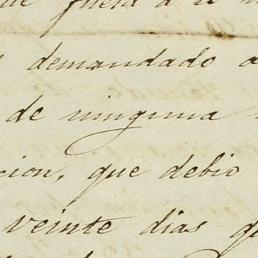 fuera a
demandado a
de ninguna
cion, que debió
veinte dias